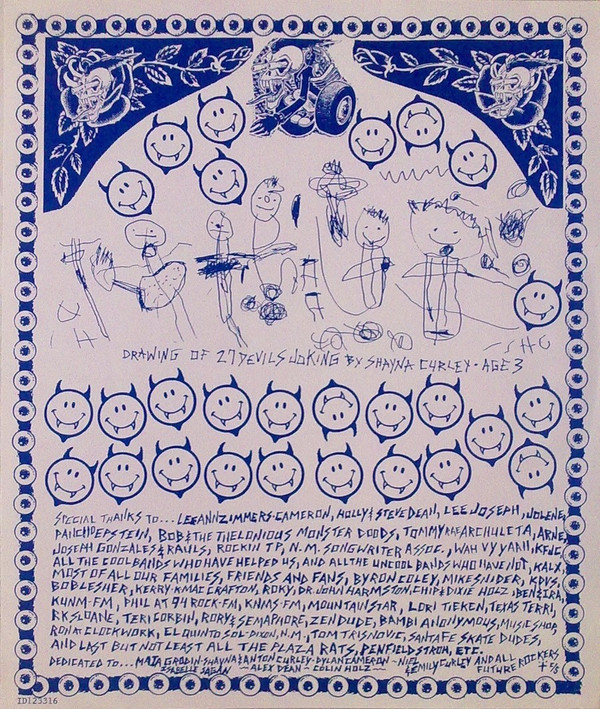 DRAWING OF 27 DEVILS JOKING BY SHAYNA CURLEY - AGE 3
SPECIAL THANKS TO... LEEANN ZIMMERS-CAMERON, HOLLY & STEVE DEAN, LEE JOSEPH, JOLENE
BOB & THE THELONIOUS MONSTER GOODS, TOMMY RAE ARCHULETA, ARNE,
JOSEPH GONZALES & RAULS, ROCKIN TP, N.M. SONGWRITER ASSOC., WAH VY YAH, KFJC,
ALL THE COOL BANDS WHO HAVE HELPED US, AND ALL THE UNCOOL BANDS WHO HAVE NOT, KALX,
MOST OF ALL OUR FAMILIES, FRIENDS AND FANS, BYRON COLEY, MIKE SNIDER, KDVS,
BOB LESHER, KERRY & MAC CRAFTON, ROKY, DR. JOHN HARMSTON, CHIP & DIXIE HOLZ, BEN & IRA,
KUNM-FM, PHIL AT 94 ROCK-FM, KNMS-FM, MOUNTAIN STAR, LORI TIEKEN, TEXAS TERRI,
RK SLOANE, TERI CORBIN, RORY & SEMAPHORE, ZEN DUDE, BAMBI ANONYMOUS, MUSIC SHOP,
RON AT CLOCKWORK, EL QUINTO SOL-DIXON, N.M., TOM TRISNOVIC, SANTA FE SKATE DUDES,
AND LAST BUT NOT LEAST ALL THE PLAZA RATS, PENFIELD STROH, ETC.
DEDICATED TO... MAJA GRODIN-SHAYNA & ANTON CURLEY-DYLAN CAMERON-NIEL
ISABELLE SAGAN - ALEX DEAN - COLIN HOLZ - & EMILY CURLEY AND ALL FUTURE ROCKERS
ID123316